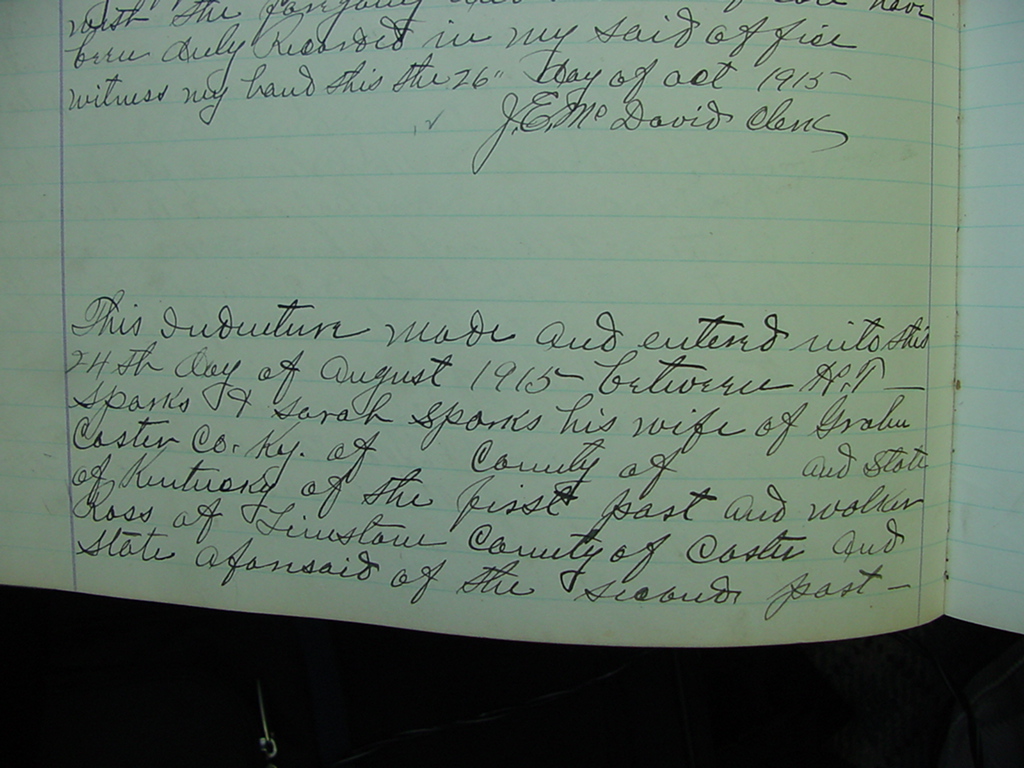 the foregoing have
been duly Recorded in my said office
witness my hand this the 26" day of oct 1915
J.E. Mc David Clerk
This Indenture made and entered into this
24th day of August 1915 between H.T
Sparks & Sarah Sparks his wife of Grahn
Carter Co. Ky. of County of and State
of Kentucky of the first part and Walker
Ross of Limestone County of Carter and
State aforesaid of the second part